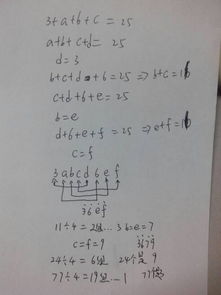 3+a+b+c=25
a+b+c+d=25
d=3
b+c+d+6=25 ⇒ b+c=16
c+d+6+e=25
b=e
d+6+e+f=25 ⇒ e+f=16
c=f
3abcd6ef
36ef
11÷4=2组…3 b=e=7
c=f=9 3679
24÷4=6组 24个是9
77÷4=19组…1 77